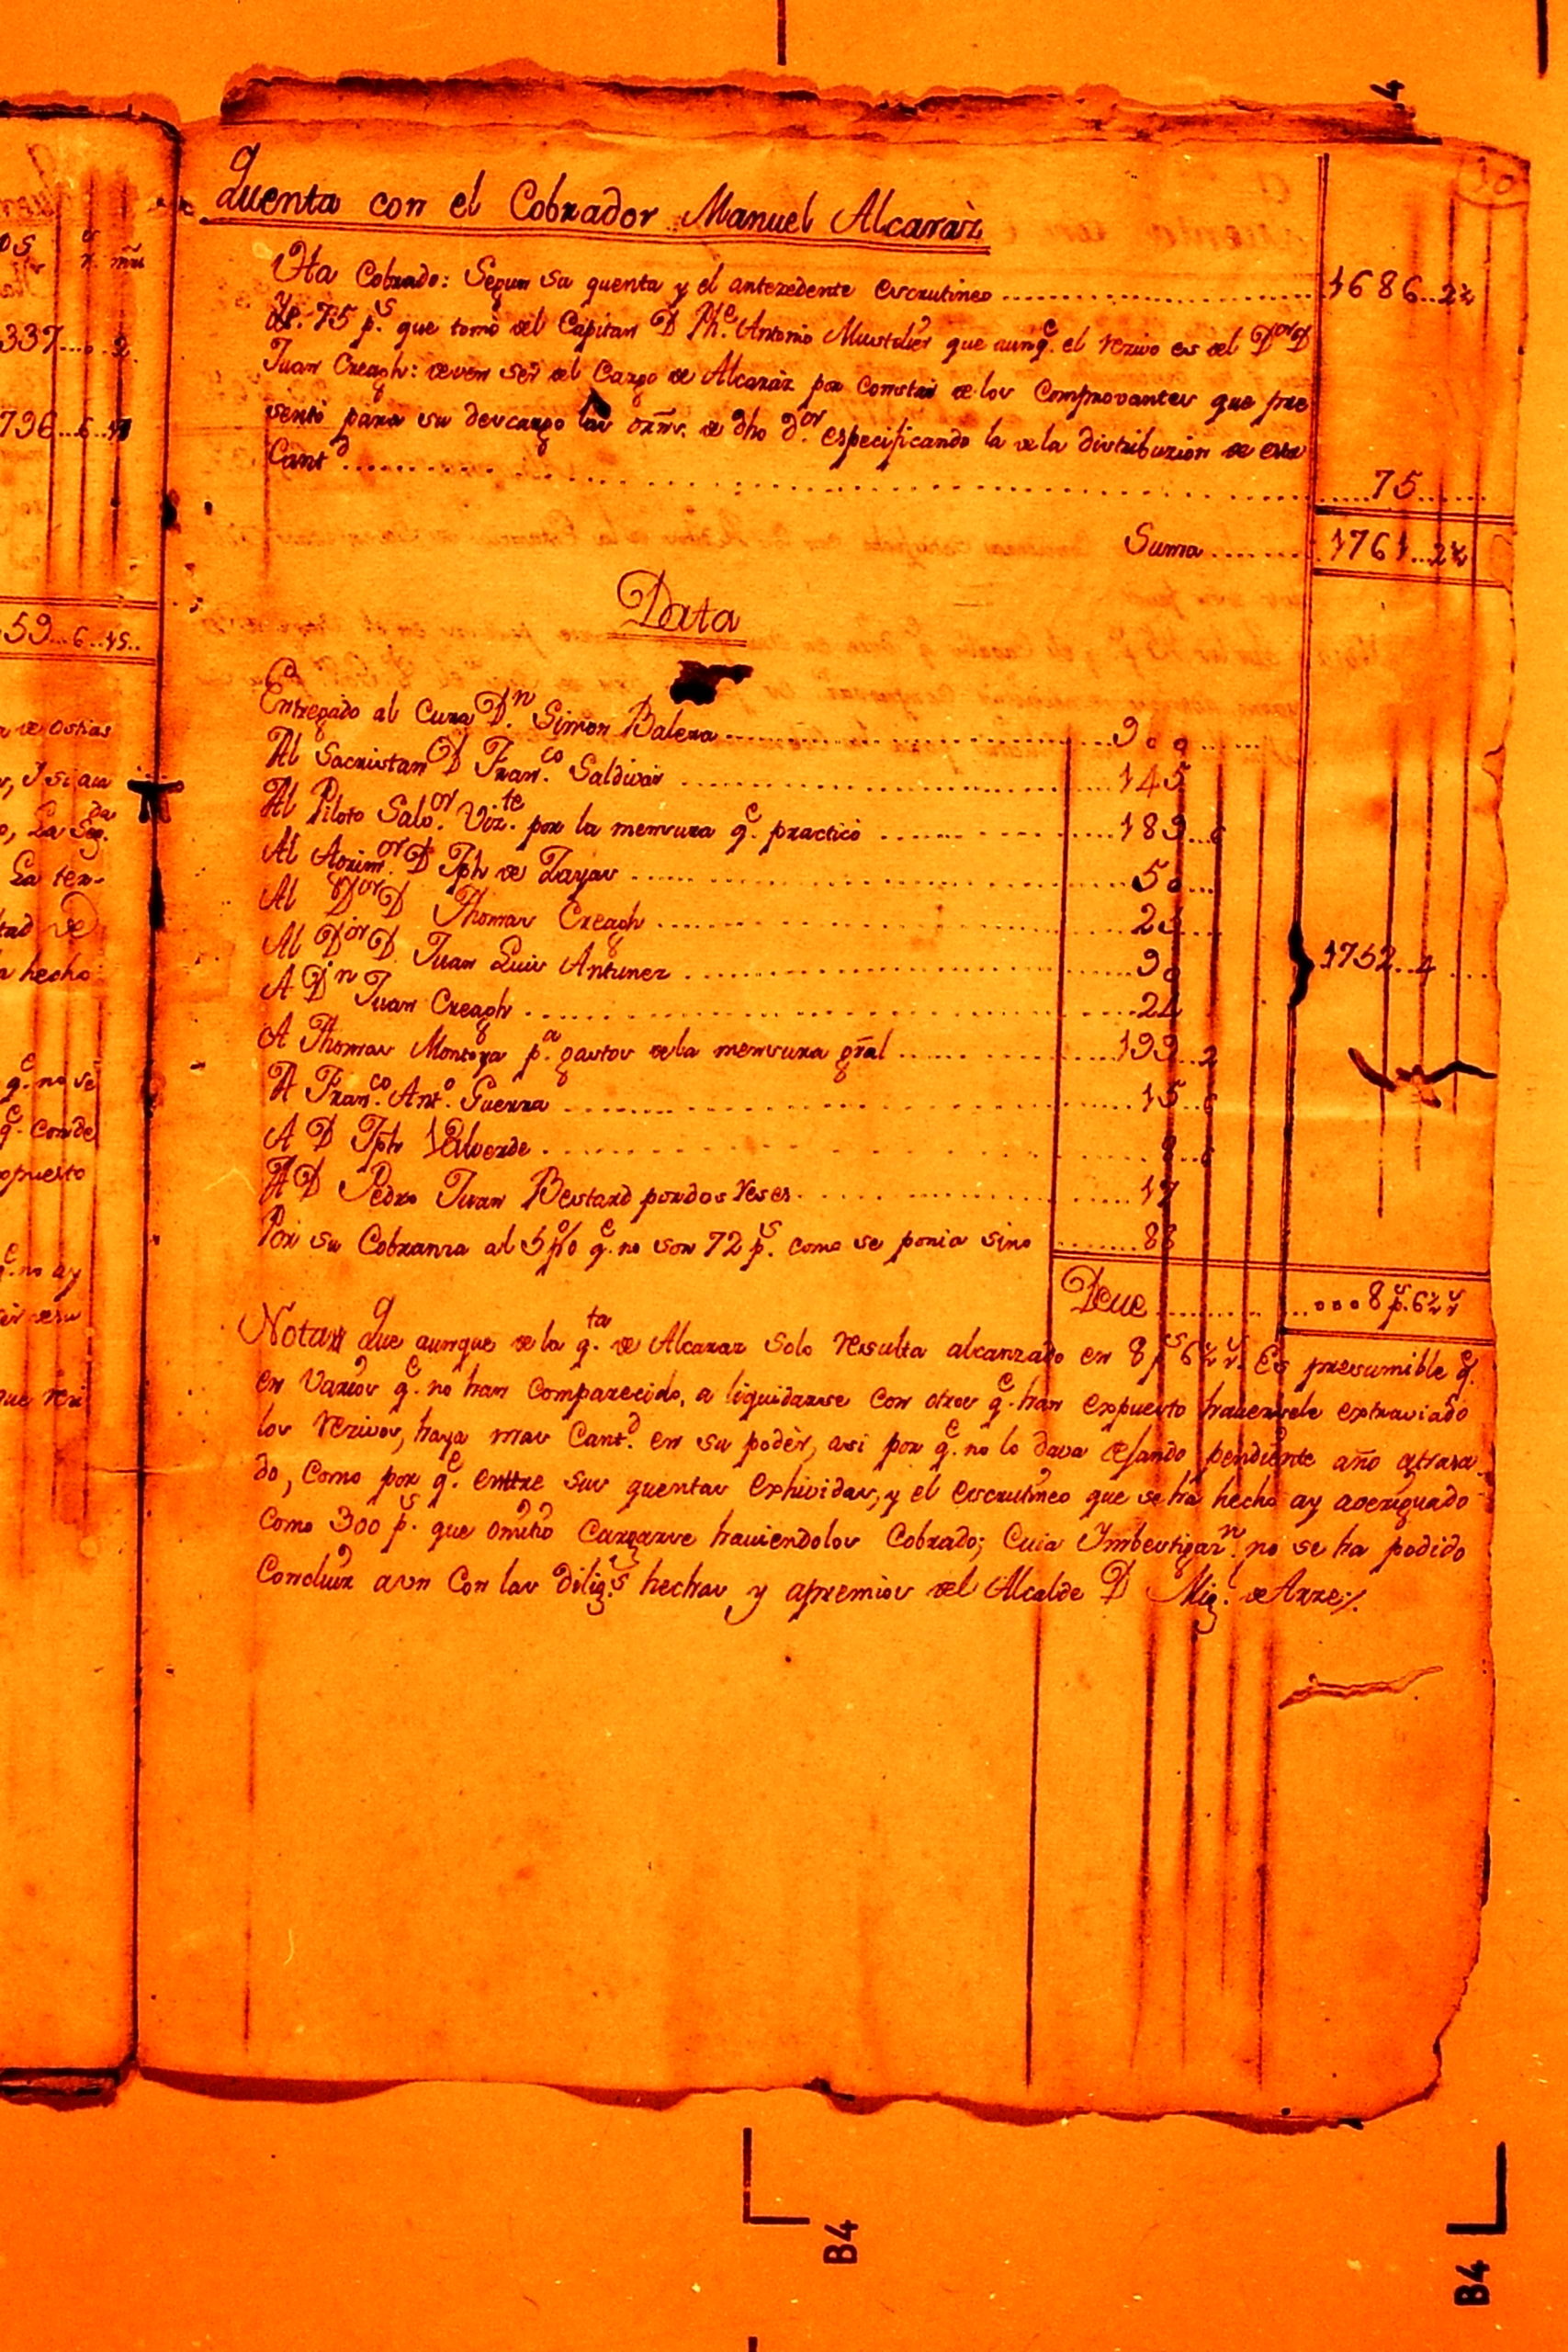 10
Quenta con el Cobrador Manuel Alcaràz
Ha Cobrado: Segun su quenta y el antezedente escrutineo ........ 1686..2½
Yt. 75 p.s que tomò del Capitan D Ph.e Antonio Mustelier que aunq.e el rezivo es del D.or D
Juan Creagh: deven ser del Cargo de Alcaràz por constar de los Comprovantes que pre
sentò para su descargo las orn̄s. de dho d.or especificando la de la distribuzion de esta
Cant.d ........ 75
Suma ........ 1761..2½
Data
Entregado al Cura D.n Simon Balera ........ 900
Al Sacristan D Fran.co Saldivar ........ 145
Al Piloto Salv.or Viz.te por la mensura q.e practicò ........ 189..6
Al D Jph de Zayas ........ 50
Al D.or D Thomas Creagh ........ 25
Al D.or D. Juan Luis Antunez ........ 90
1752..4
A D.n Juan Creagh ........ 24
A Thomas Montoya p.a gastos de la mensura gr̄al ........ 199..2
A Fran.co Ant.o Guerra ........ 15..6
A D Jph Valverde ........ 8..6
A D Pedro Juan Bestard por dos reses ........ 17
Por su Cobranza al 5 p%o q.e no son 72 p.s como se ponia sino ........ 88
Deve ........ 8 p.s 6½ r.s
Nota Que aunque de la q.ta de Alcaraz solo resulta alcanzado en 8 p.s 6½ r.s Es presumible q.e
en varios q.e no han comparecido, a liquidarse con otros q.e han expuesto haverseles extraviado
los rezivos, haya mas Cant.d en su podèr, asi por q.e no lo dava dejando pendiente año atrasa
do, como por q.e entre sus quentas exhividas, y el escrutineo que se ha hecho ay averiguado
como 300 p.s que omitiò cargarse haviendolos Cobrado; Cuia Imbestigaz.n no se ha podido
Concluir aun con las dilig.s hechas y apremios del Alcalde D Mig.l de Arze
337...2
796..6..17
59..6..15..
de ostias
La Seg.da
La ter-
hecho
q.e no se
q.e no ay
B4
B4